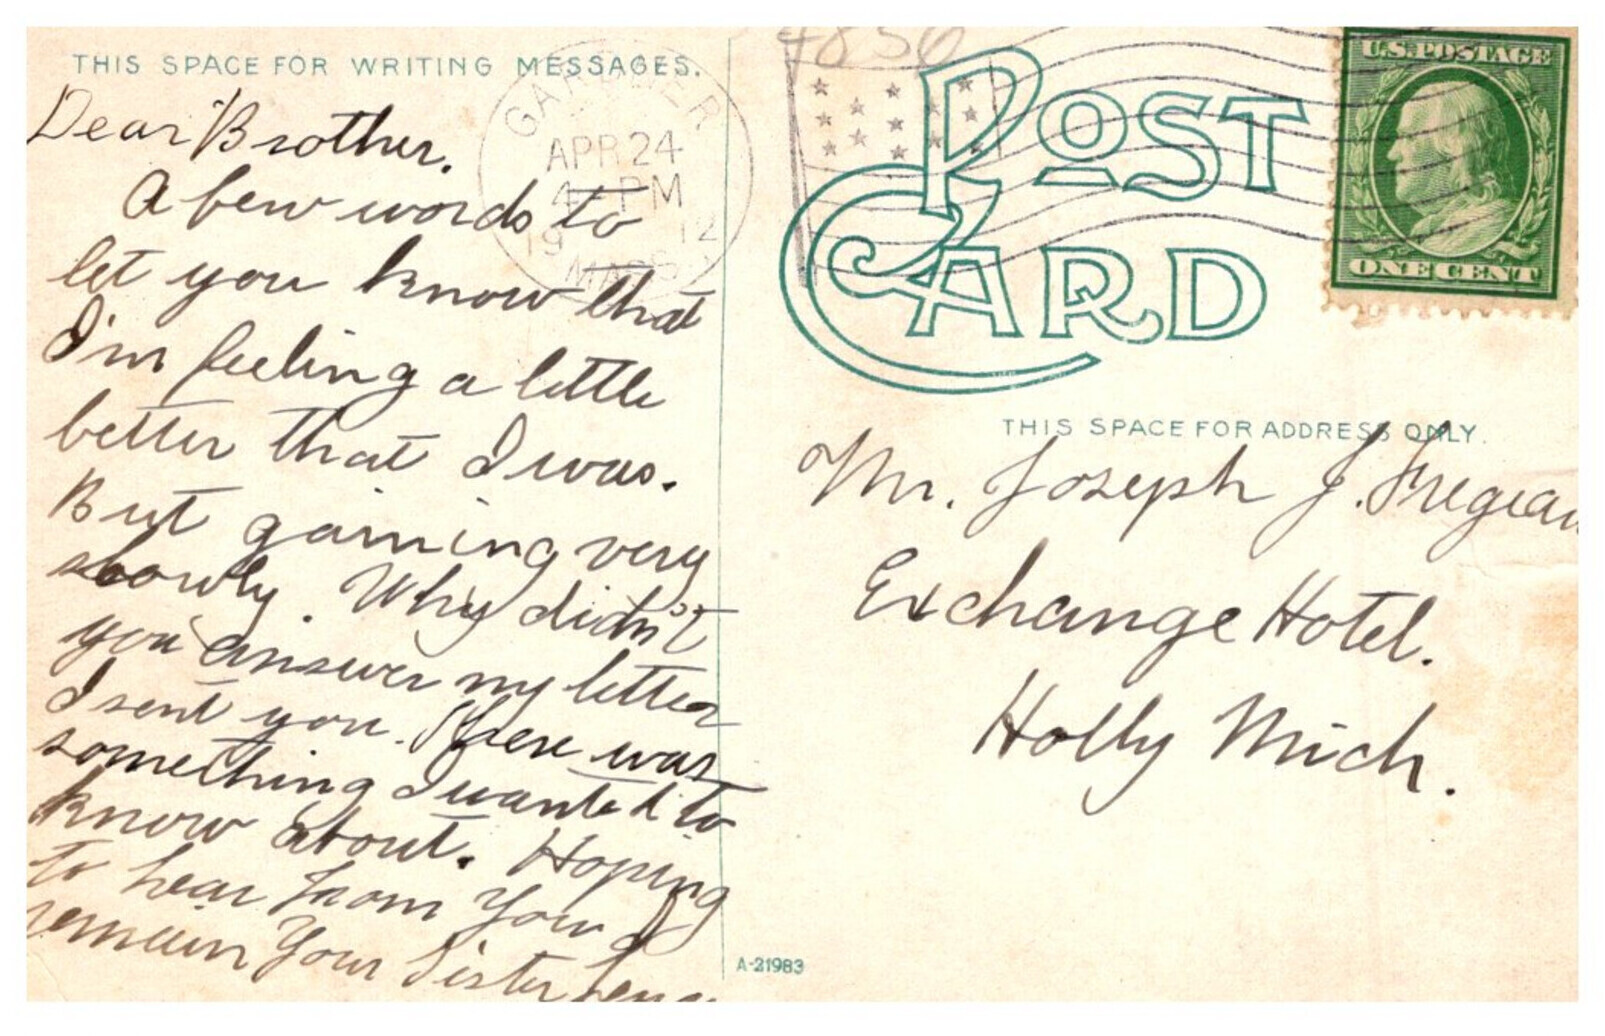 THIS SPACE FOR WRITING MESSAGES.
Dear Brother.
A few words to
let you know that
I'm feeling a little
better that I was.
But gaining very
slowly. Why didn't
you answer my letter
I sent you. There was
something I wanted to
know about. Hoping
to hear from you I
remain Your Sister
GARDNER
APR 24
4 PM
19 12
MASS
4856
POST
CARD
U.S. POSTAGE
ONE CENT
THIS SPACE FOR ADDRESS ONLY.
Mr. Joseph J. Fregeau
Exchange Hotel.
Holly Mich.
A-21983